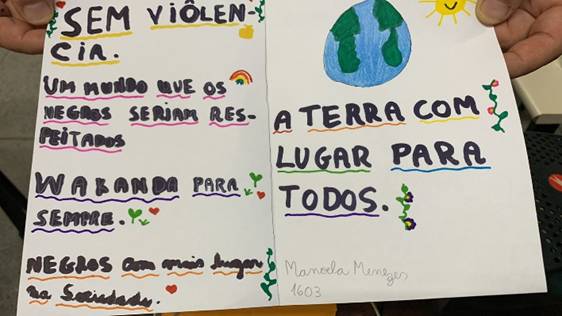 SEM VIÔLEN-
CIA.
UM MUNDO QUE OS
NEGROS SERIAM RES-
PEITADOS
WAKANDA PARA
SEMPRE.
NEGROS com mais lugar
na Sociedade.
A TERRA COM
LUGAR PARA
TODOS.
Manoela Menezes
1603